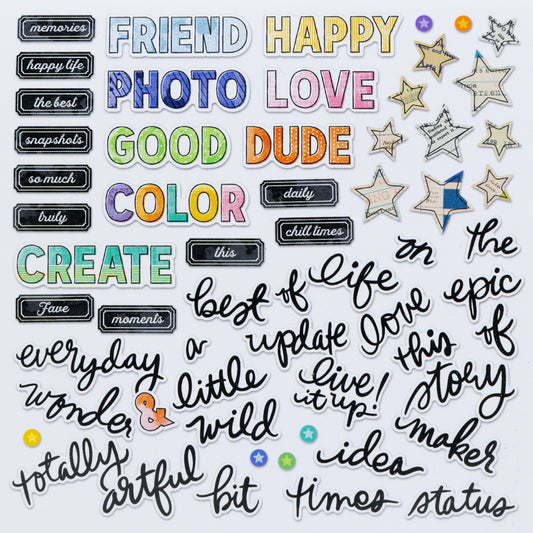 memories
FRIEND
HAPPY
happy life
the best
PHOTO
LOVE
snapshots
GOOD
DUDE
so much
truly
COLOR
daily
chill times
this
CREATE
Fave
moments
on
the
best
of
life
epic
everyday
a
update
love
this
of
wonder
&
little
live!
it up!
story
wild
maker
totally
artful
bit
idea
times
status